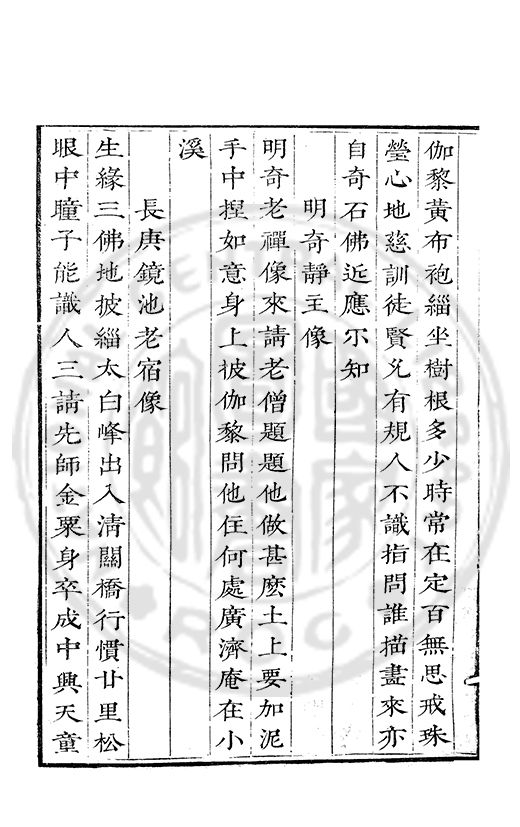 伽黎黃布袍緇坐樹根多少時常在定百無思戒珠
瑩心地慈訓徒賢允有規人不識指問誰描畫來亦
自奇石佛近應不知
明奇靜主像
明奇老禪像來請老僧題題他做甚麽土上要加泥
手中捏如意身上披伽黎問他住何處廣濟庵在小
溪
長庚鏡池老宿像
生緣三佛地披緇太白峰出入淸關橋行慣廿里松
眼中瞳子能識人三請先師金粟身卒成中興天童